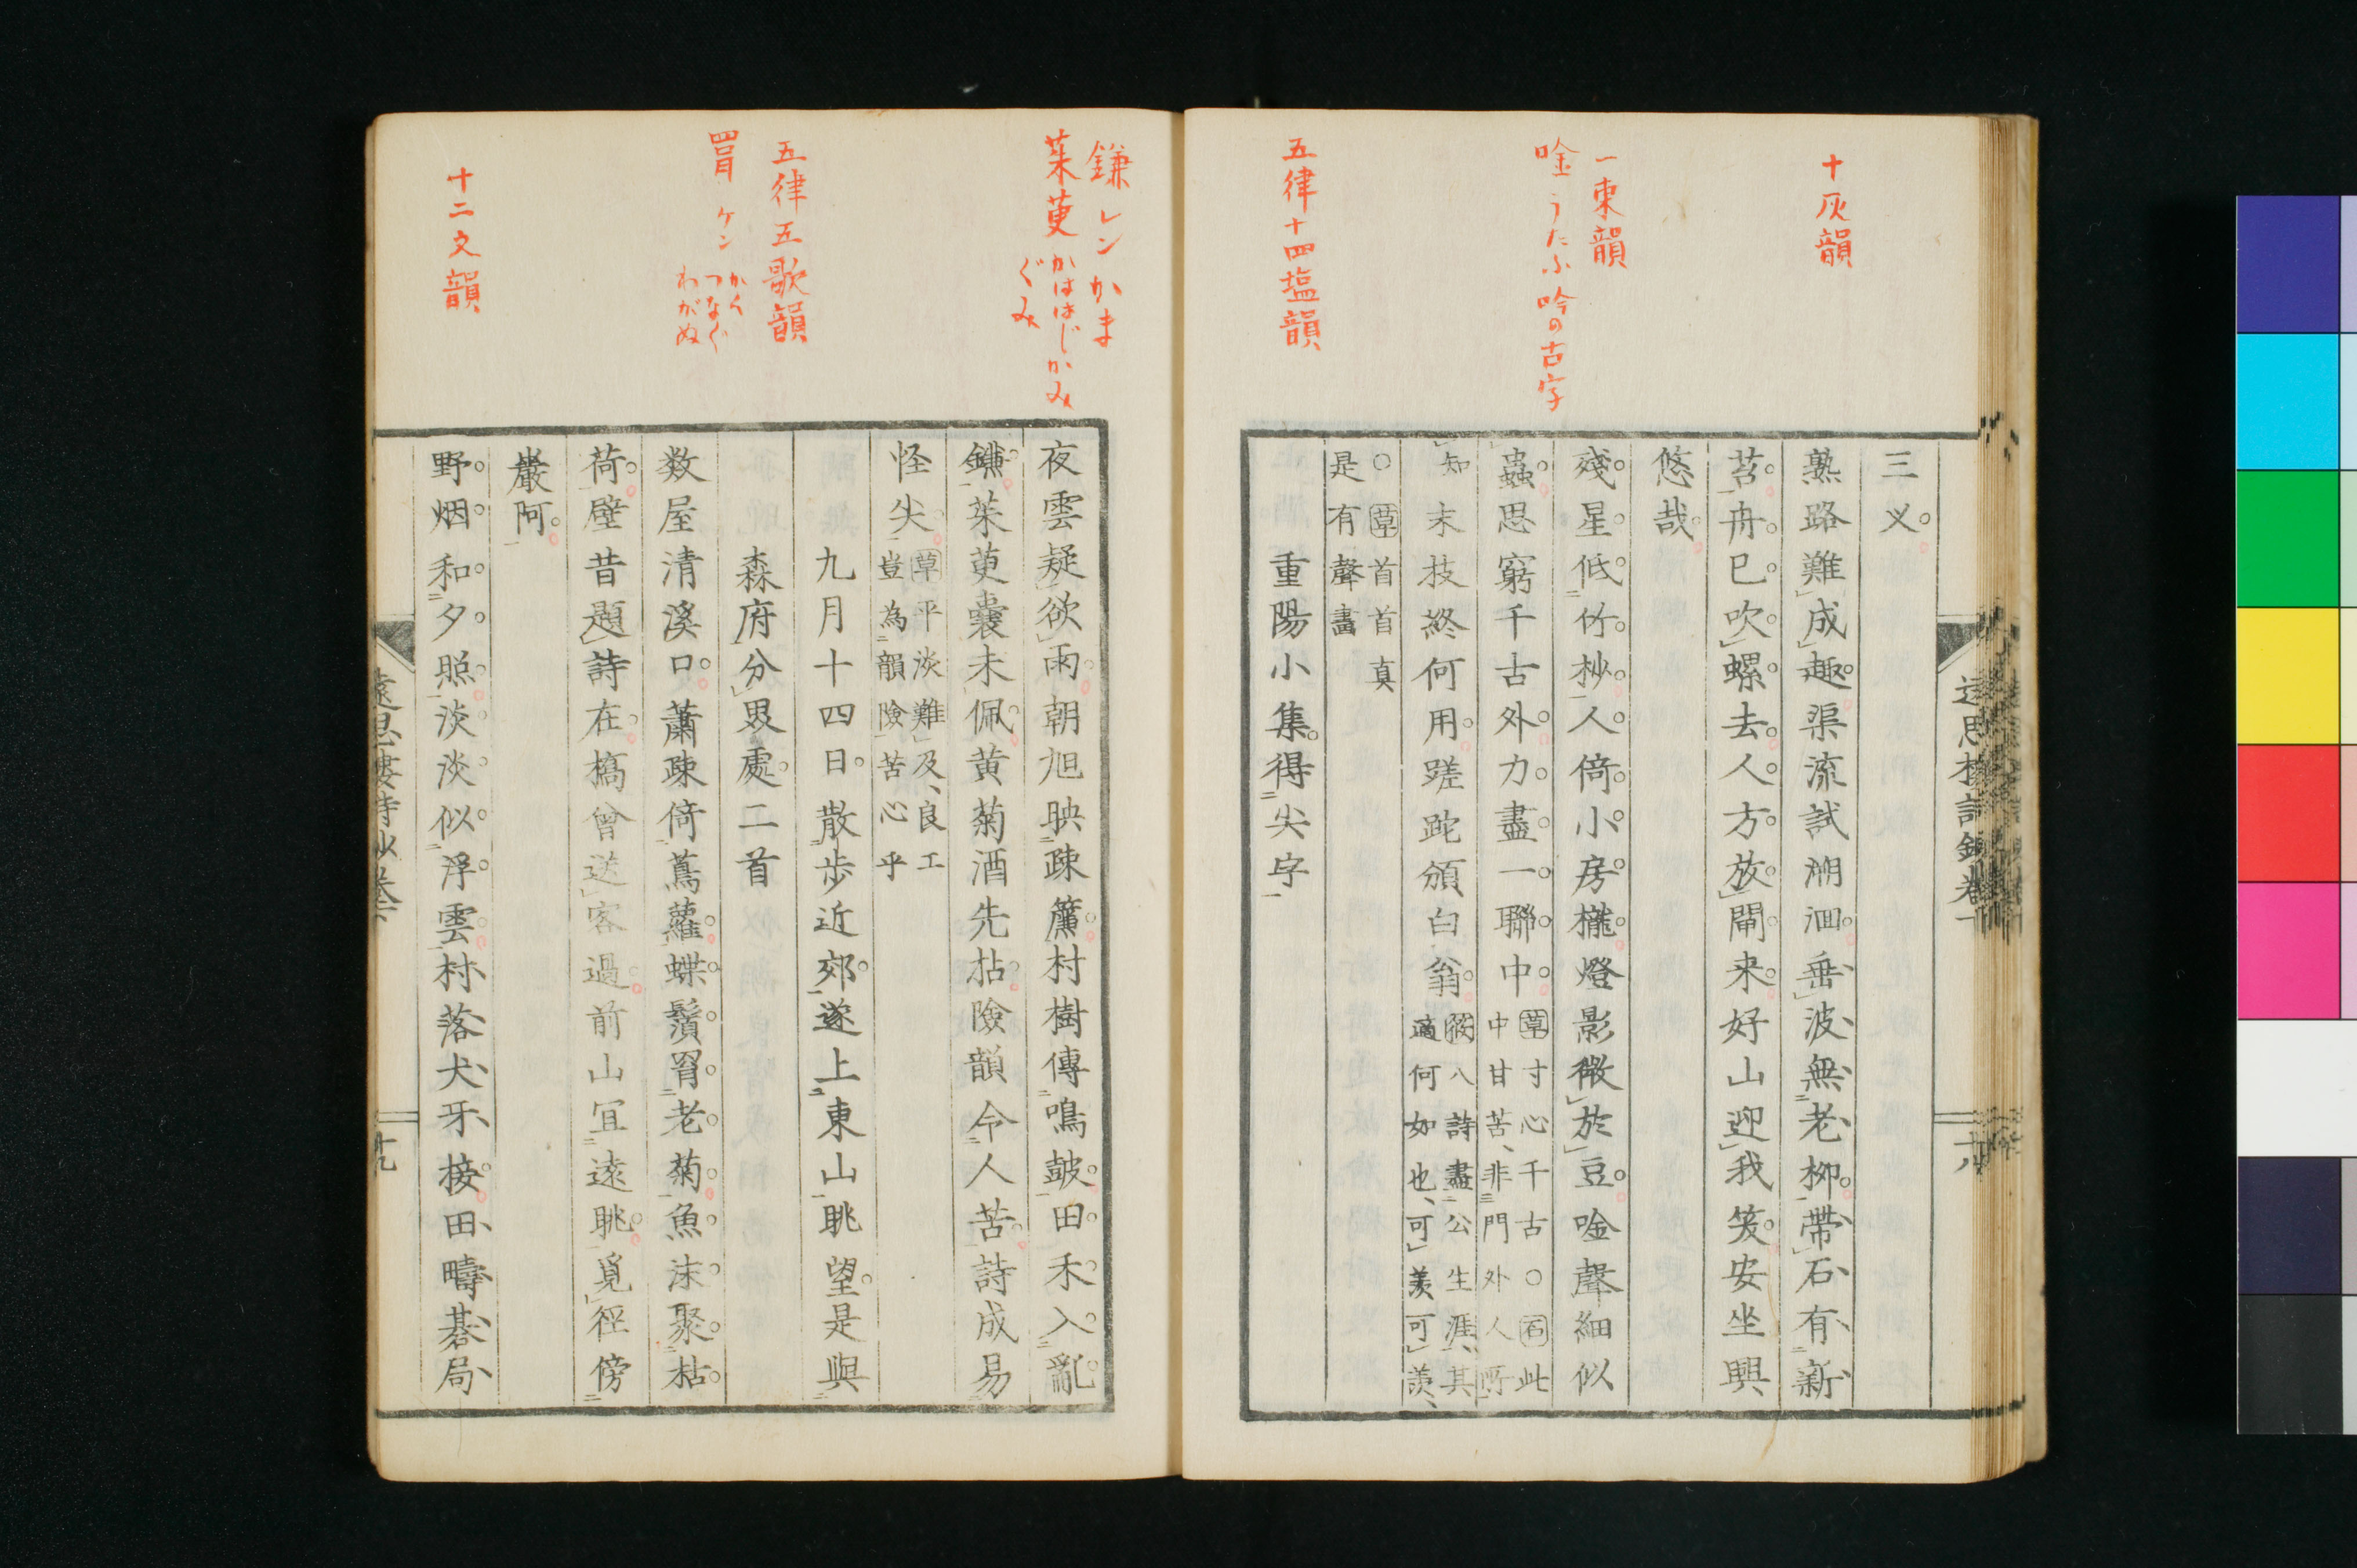 十灰韻
一東韻
唫うたふ吟の古字
五律十四塩韻
三叉
熟路難成趣渠流試溯洄垂波無老柳帶石有新
苔舟已吹螺去人方放閘来好山迎我笑安坐興
悠哉
殘星低竹杪人倚小房櫳燈影微於豆唫聲細似
蟲思窮千古外力盡一聯中
草寸心千古○石此
中甘苦非門外人所
知
末技終何用蹉跎頽白翁
八詩盡公生涯其
適何如也可羨可羨
○草首首真
是有聲畵
重陽小集得尖字
十八
鎌レンかま
茱萸かははじかみ
ぐみ
五律五歌韻
罥ケンかく
つなぐ
わがぬ
十二文韻
夜雲疑欲雨朝旭映疎簾村樹傳鳴皷田禾入亂
鐮茱萸囊未佩黄菊酒先拈險韻令人苦詩成易
怪尖
草平淡難及良工
豈為韻險苦心乎
九月十四日散歩近郊遂上東山眺望是與
森府分界處二首
数屋清溪口蕭疎倚蔦蘿蝶鬚罥老菊魚沫聚枯
荷壁昔題詩在橋曾送客過前山宜遠眺覓徑傍
巌阿
野烟和夕照淡淡似浮雲村落犬牙接田疇碁局
遠思樓詩鈔卷下
十九